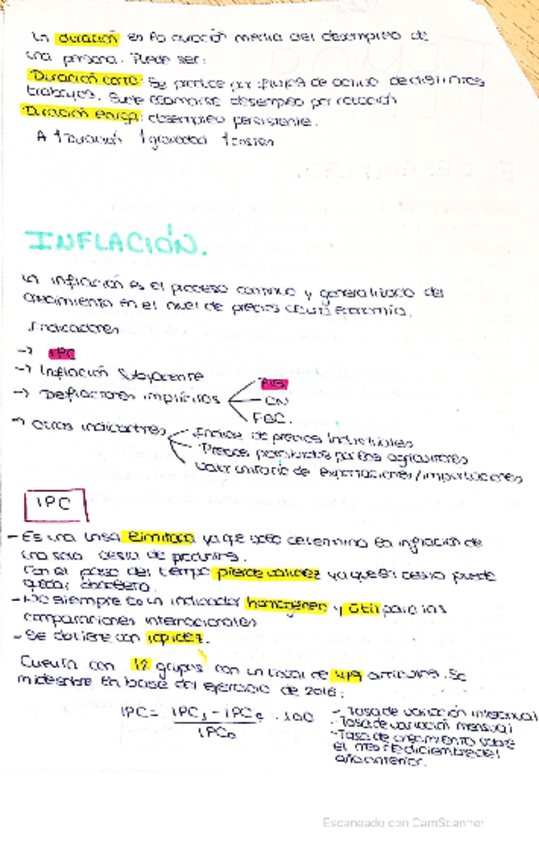 La duración es la duración media del desempleo de
una persona. Puede ser:
Duración corta: Se produce por flujos de activo de distintos
trabajos. Suele llamarse desempleo por rotación
Duración larga: desempleo persistente.
A ↑ Duración ↑ gravedad ↑ costes
INFLACIÓN.
La inflación es el proceso continuo y generalizado del
crecimiento en el nivel de precios de una economía.
Indicadores
→ IPC
→ Inflación Subyacente
→ Deflactores implícitos
PIB
CN
FBC.
→ Otros indicadores
Índice de precios industriales
Precios percibidos por los agricultores
Valor unitario de exportaciones/importaciones
IPC
- Es una limitada ya que solo determina la inflación de
una sola cesta de productos.
Con el paso del tiempo pierde validez ya que la cesta puede
quedar obsoleta.
- No siempre es un indicador homogéneo y útil para las
comparaciones internacionales
- Se obtiene con rapidez.
Cuenta con 12 grupos con un total de 479 artículos. Se
mide en base del ejercicio de 2016:
IPC = IPC₁ - IPC₀ / IPC₀ · 100
- Tasa de variación interanual
- Tasa de variación mensual
- Tasa de crecimiento sobre
el mes de diciembre del
año anterior.
Escaneado con CamScanner